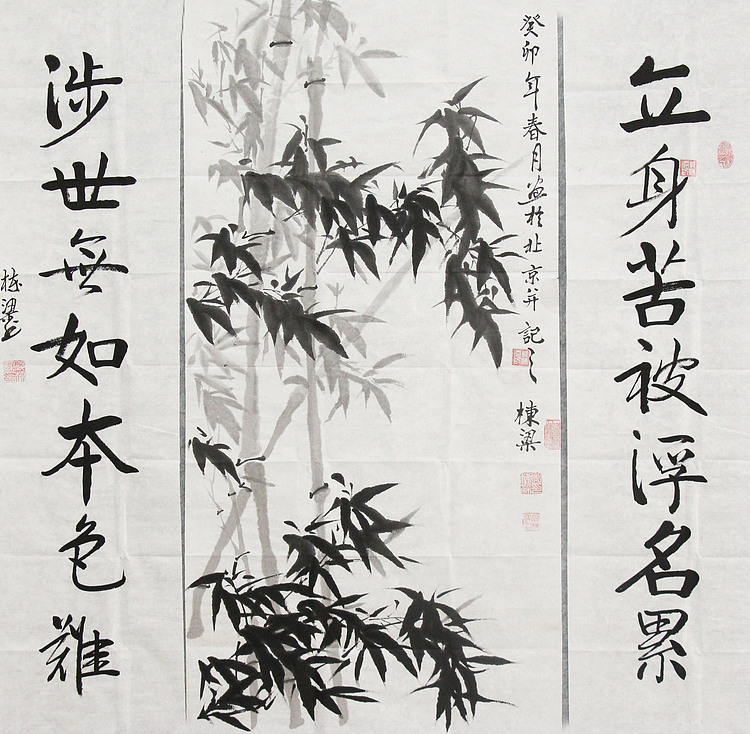 立身苦被浮名累
癸卯年春月画於北京并記之
棟梁
涉世無如本色難
棟梁